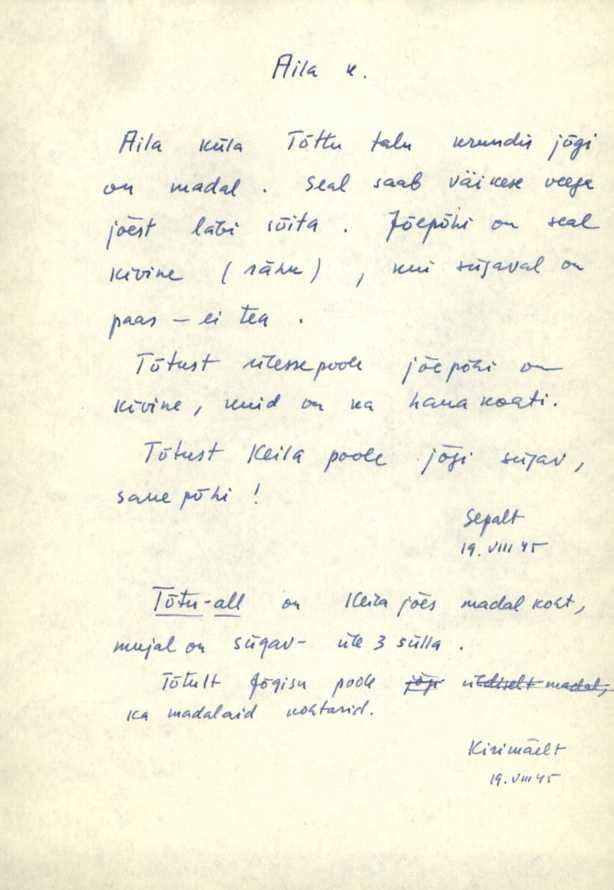 Aila k.
Aila küla Tõttu talu krundis jõgi
on madal. Seal saab väikese veega
jõest läbi sõita. Jõepõhi on seal
kivine (rähk), kui sügaval on
paas – ei tea.
Tõtust ülessepoole jõepõhi on
kivine, kuid on ka haua koati.
Tõtust Keila poole jõgi sügav,
saue põhi!
Sepalt
19. VIII 45
Tõtu-all on Keila jões madal koht,
mujal on sügav - üle 3 sülla.
Tõtult Jõgisu poole jõgi üldiselt madal,
ka madalaid kohtasid.
Kirimäelt
19. VIII 45